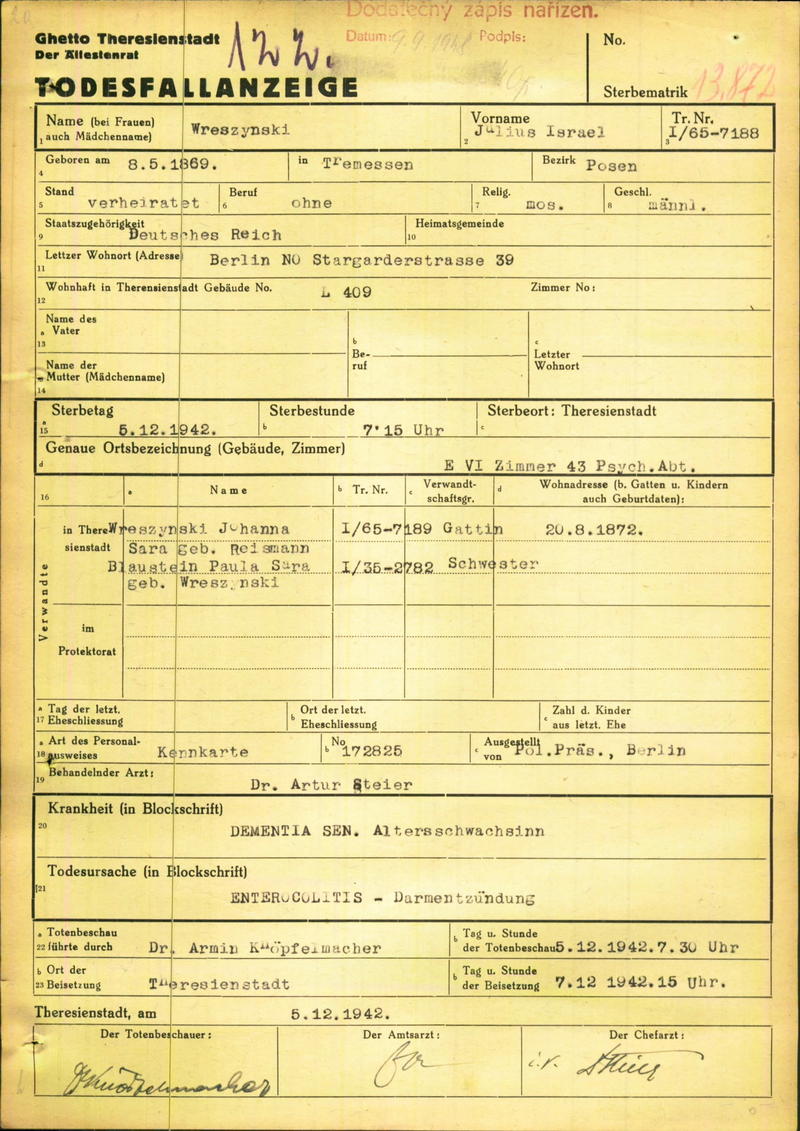 Dodatečný zápis nařízen.
Datum: 9.9.1948 Podpis:
Ghetto Theresienstadt
Der Ältestenrat
TODESFALLANZEIGE
No.
Sterbematrik 13.872
Name (bei Frauen) auch Mädchenname) Wreszynski
1
Vorname Julius Israel
2
Tr. Nr. I/65-7188
3
Geboren am 8.5.1869. in Tremessen Bezirk Posen
4
Stand verheiratet Beruf ohne Relig. mos. Geschl. männl.
5 6 7 8
Staatszugehörigkeit Deutsches Reich Heimatsgemeinde
9 10
Lettzer Wohnort (Adresse) Berlin NO Stargarderstrasse 39
11
Wohnhaft in Therensienstadt Gebäude No. L 409 Zimmer No:
12
Name des
a Vater
13
b
Be-
ruf
c
Letzter
Wohnort
Name der
Mutter (Mädchenname)
14
Sterbetag Sterbestunde Sterbeort: Theresienstadt
a 15 5.12.1942. b 7'15 Uhr c
Genaue Ortsbezeichnung (Gebäude, Zimmer)
d E VI Zimmer 43 Psych.Abt.
16 a Name b Tr. Nr. c Verwandt-schaftsgr. d Wohnadresse (b. Gatten u. Kindern auch Geburtdaten):
Verwandte
in Theresienstadt
Wreszynski Johanna I/65-7189 Gattin 20.8.1872.
Sara geb. Reismann
Blaustein Paula Sara I/35-2782 Schwester
geb. Wreszynski
im
Protektorat
a Tag der letzt. b Ort der letzt. Zahl d. Kinder
17 Eheschliessung Eheschliessung c aus letzt. Ehe
a Art des Personal- b No c Ausgestellt
18 ausweises Kennkarte 172825 von Pol.Präs., Berlin
Behandelnder Arzt:
19 Dr. Artur Steier
Krankheit (in Blockschrift)
20
DEMENTIA SEN. Altersschwachsinn
Todesursache (in Blockschrift)
21
ENTEROCOLITIS - Darmentzündung
a Totenbeschau b Tag u. Stunde
22 führte durch Dr. Armin Knöpfelmacher der Totenbeschau 5.12.1942.7.30 Uhr
b Ort der b Tag u. Stunde
23 Beisetzung Theresienstadt der Beisetzung 7.12 1942.15 Uhr.
Theresienstadt, am 5.12.1942.
Der Totenbeschauer: Der Amtsarzt: Der Chefarzt:
i.V.